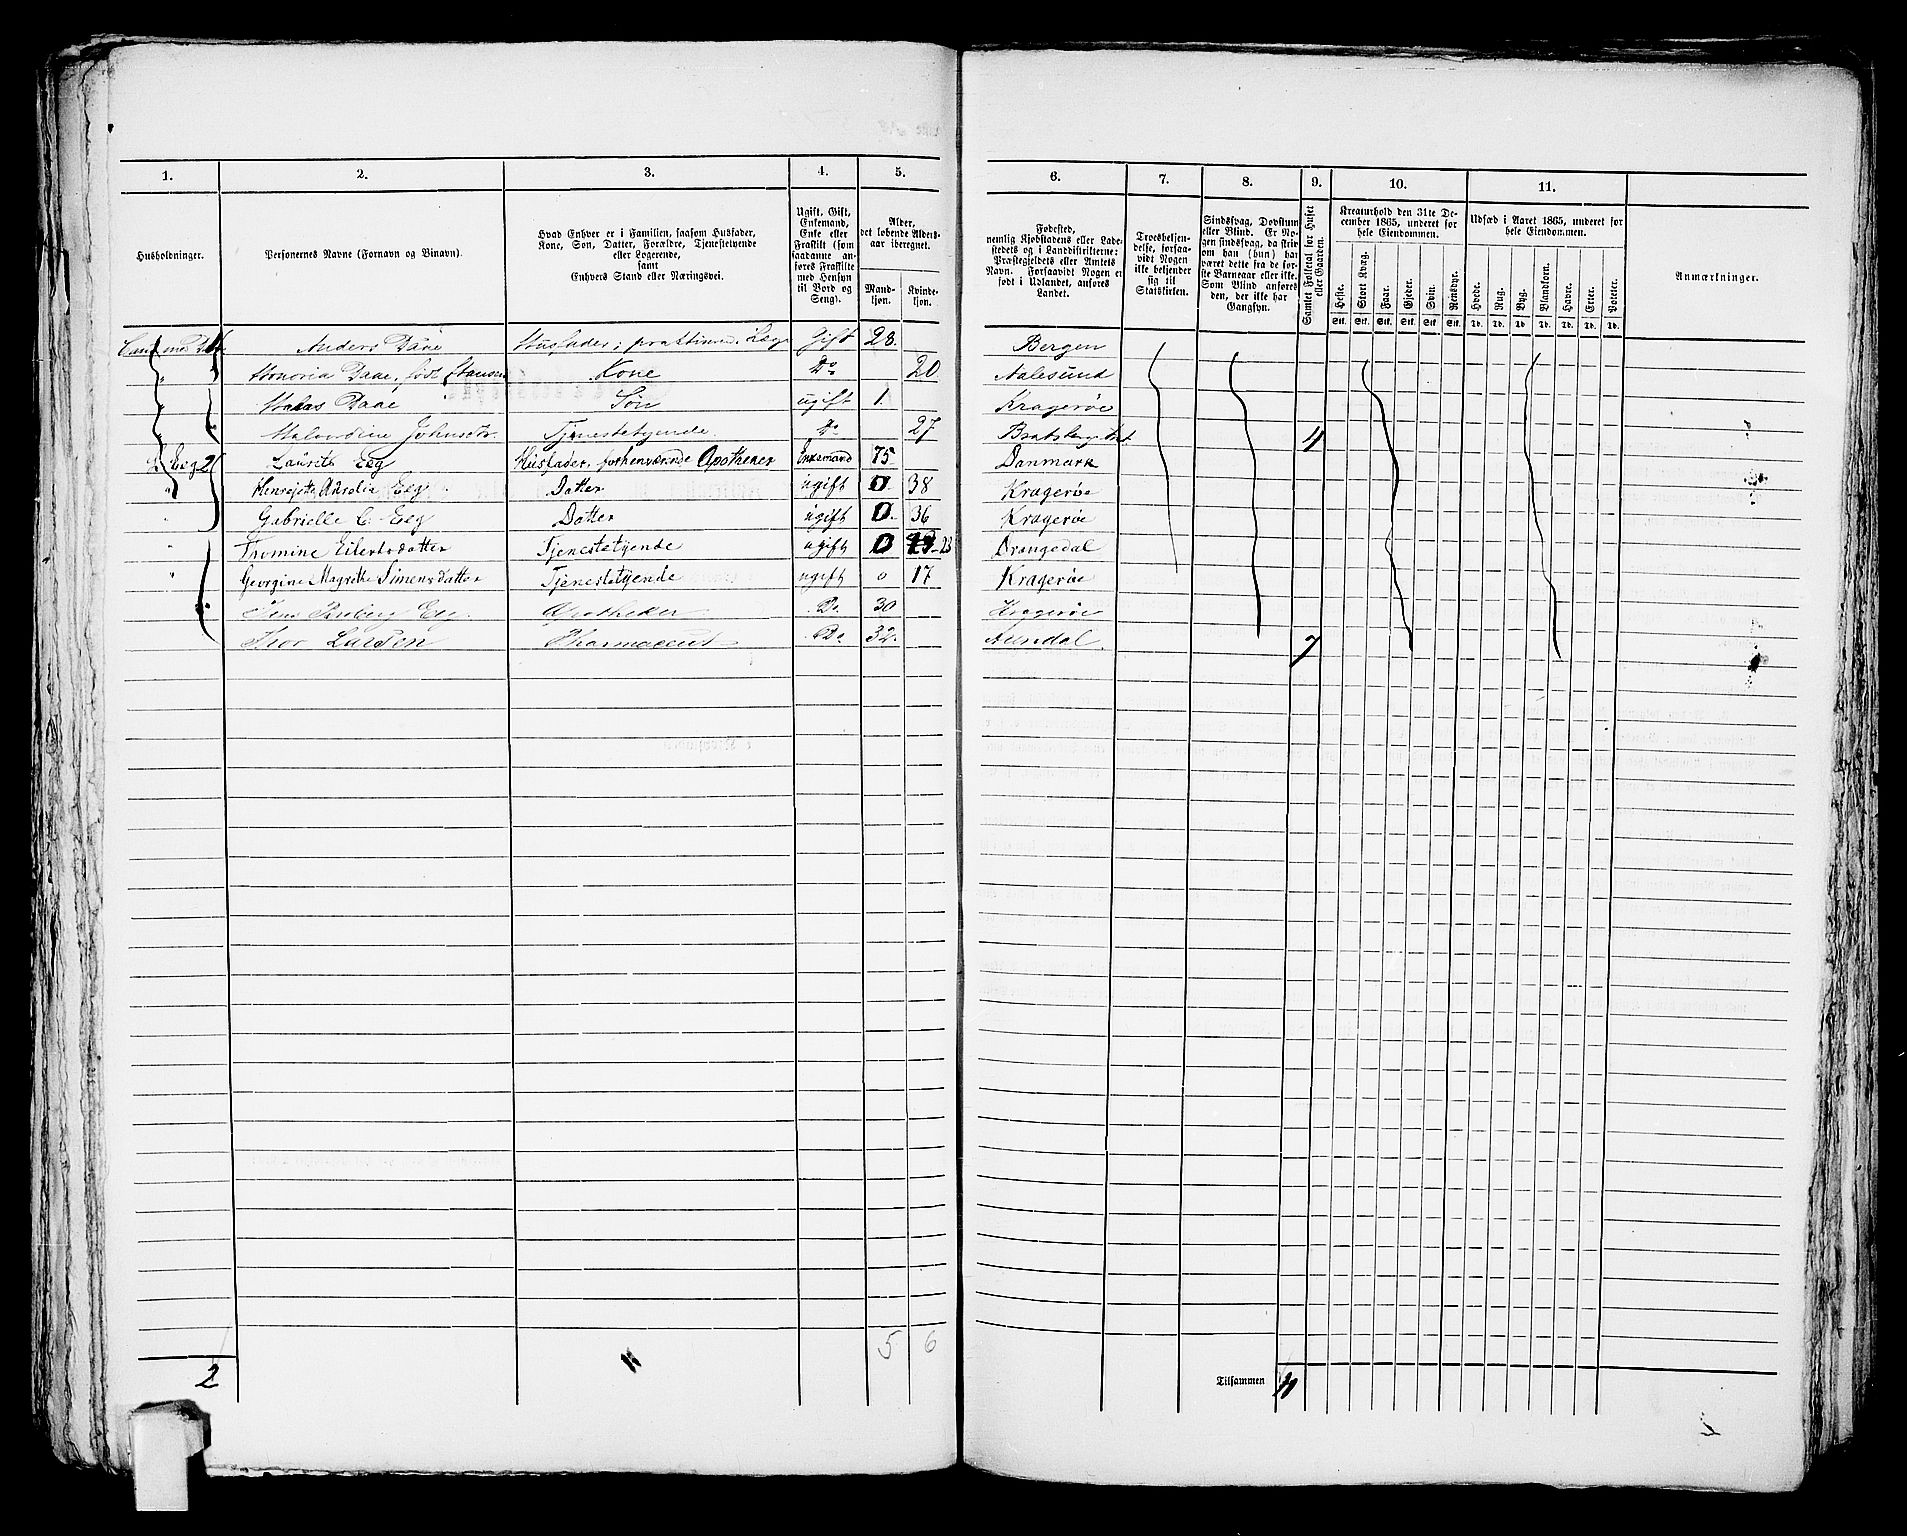 1. 2. 3. 4. 5. 6. 7. 8. 9. 10. 11.
Husholdninger.
Personernes Navne (Fornavn og Tilnavn).
Hvad Enhver er i Familien, saasom Husfader,
Kone, Søn, Datter, Forældre, Tjenestetyende
eller Logerende,
samt
Enhvers Stand eller Næringsvei.
Ugift, Gift,
Enkemand,
Enke eller
Fraskilt (som
saadanne an-
føres Fraskilte
med Hensyn
til Bord og
Seng).
Alder,
det løbende Alders-
aar iberegnet.
Mand-
kjøn.
Kvinde-
kjøn.
Fødested,
nemlig Kjøbstadens eller Lade-
stedets og i Landdistrikterne:
Præstegjeldets eller Amtets
Navn. Forsaavidt Nogen er
født i Udlandet, anføres
Landet.
Troesbekjen-
delse, forsaa-
vidt Nogen
ikke bekjender
sig til
Statskirken.
Sindssvag, Døvstum
eller Blind. Er No-
gen sindssvag, da skriv
om han (hun) har
været dette fra de før-
ste Barneaar eller ikke.
Som Blind anføres
den, der ikke har
Gangsyn.
Samlet Folketal for Huset
eller Gaarden.
Kreaturhold den 31te De-
cember 1865, underet for
hele Eiendommen.
Heste. Stort Kvæg. Faar. Gjeder. Svin. Rensdyr.
Stk. Stk. Stk. Stk. Stk. Stk.
Udsæd i Aaret 1865, underet for
hele Eiendommen.
Hvede. Rug. Byg. Blandkorn. Havre. Erter. Poteter.
Td. Td. Td. Td. Td. Td. Td.
Anmærkninger.
Anders Daae Husfader, Gift 28. Bergen
Honoria Daae, født Hansen Kone Do 20 Aalesund
Daae Søn ugift 1. Kragerøe
Tjenestetyende Do 27 4
L. Eeg 2 Laurits Eeg Husfader, forhenværende Apotheker Enkemand 75 Danmark
" Henrjette Eeg Datter ugift 0 38 Kragerøe
" Gabrielle C. Eeg Datter ugift 0 36 Kragerøe
" Fromine Eilertsdatter Tjenestetyende ugift 0 23 Drangedal
" Georgine Magrethe Simensdatter Tjenestetyende ugift 0 17 Kragerøe
Jens Eeg Apotheker Do 30 Kragerøe
Thor Larsen Pharmaceut Do 32. Arendal. 7
5 6
2 11 Tilsammen 11